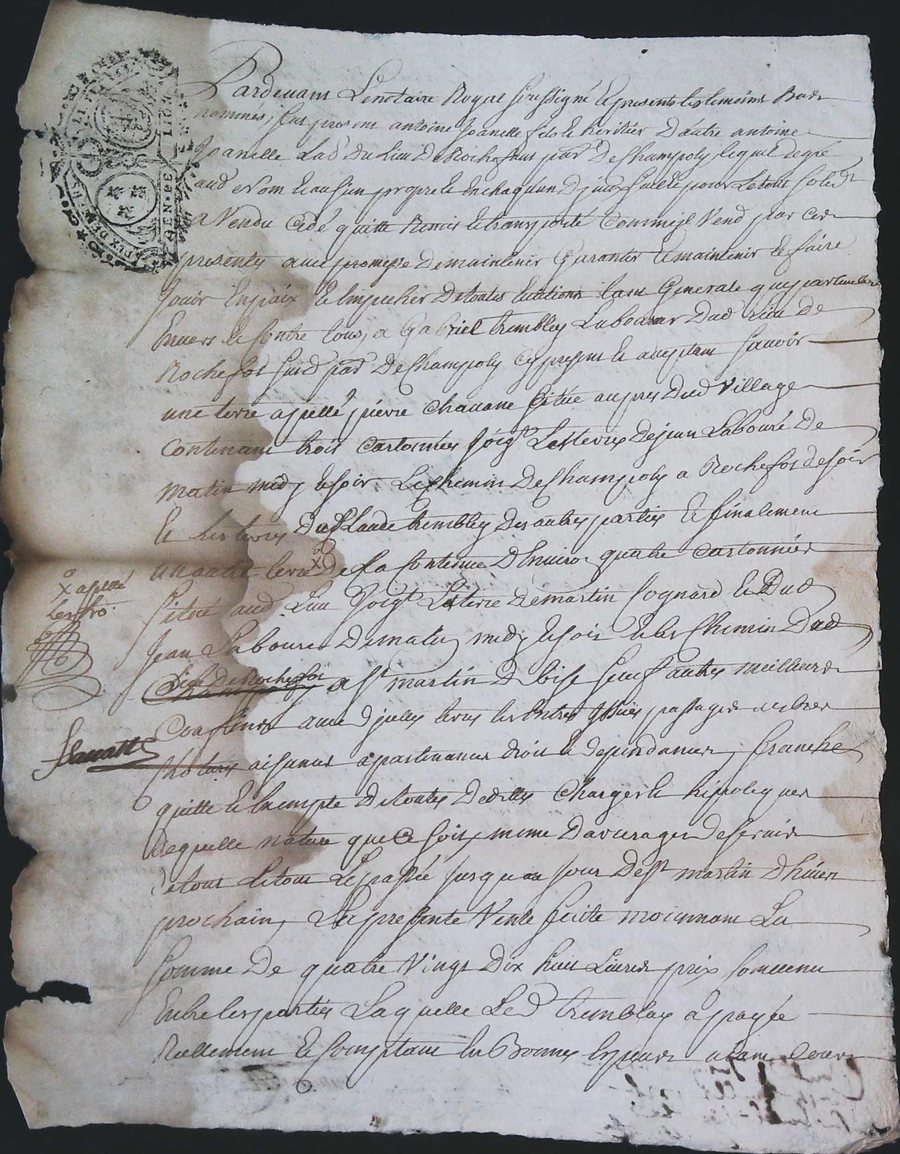 Pardevant Le notaire Royal soussigné et presents les temoins Bas
nommes, fut present antoine fils et heritier D'autre antoine
Lab. du Lieu De Rochefort par. De Champoly, lequel De gré
aud. nom et au sien propre et en chaquun D'iceux seul et pour Le tout solid.
a Vendu Cedé quitté Remis et transporté Comme il Vend par Ces
presentes avec promesse De maintenir Garantir et maintenir et faire
Jouir En paix et Empecher De toutes Evictions tant Generale que particuliere
Envers et Contre tous, a Gabriel trembley Laboureur Dud. Lieu De
Rochefort susd. par. De Champoly Cy present et aceptant Savoir
une terre apellé pierre Chavane Située au pres Dud. Village
Contenant trois Cartonnées Joig. Les terres De Jean Labouré De
matin midy et soir Le Chemin De Champoly a Rochefort de soir
et Les terres De Claude trembley Des autres parties et finalement
un autre terre x De La Contenue D'Environ quatre Cartonnées
x apellé
Située aud. Lieu Joig. La terre De martin Cognard et Dud.
Jean Labouré De matin midy et soir et Le Chemin Dud.
Lieu De Rochefort a St martin De bise Sauf autres meilleurs
Confins avec D'icelles Leurs Entrées Issues passages arbres
aisances apartenances Droits et dependances, franche
quitte et Exempte De toutes Dettes Charges et hipoteques
De quelle nature que Ce soit, meme D'arrerages De servis
De tout Le tout Le passée Jusqu'au Jour De St martin D'hiver
prochain, La presente Vente faite moienant La
Somme De quatre Vingt Dix huit Livres prix Convenu
Entre Les parties Laquelle Led. trembley a payée
Reellement et Comptant En Bonnes Especes aiant Cours